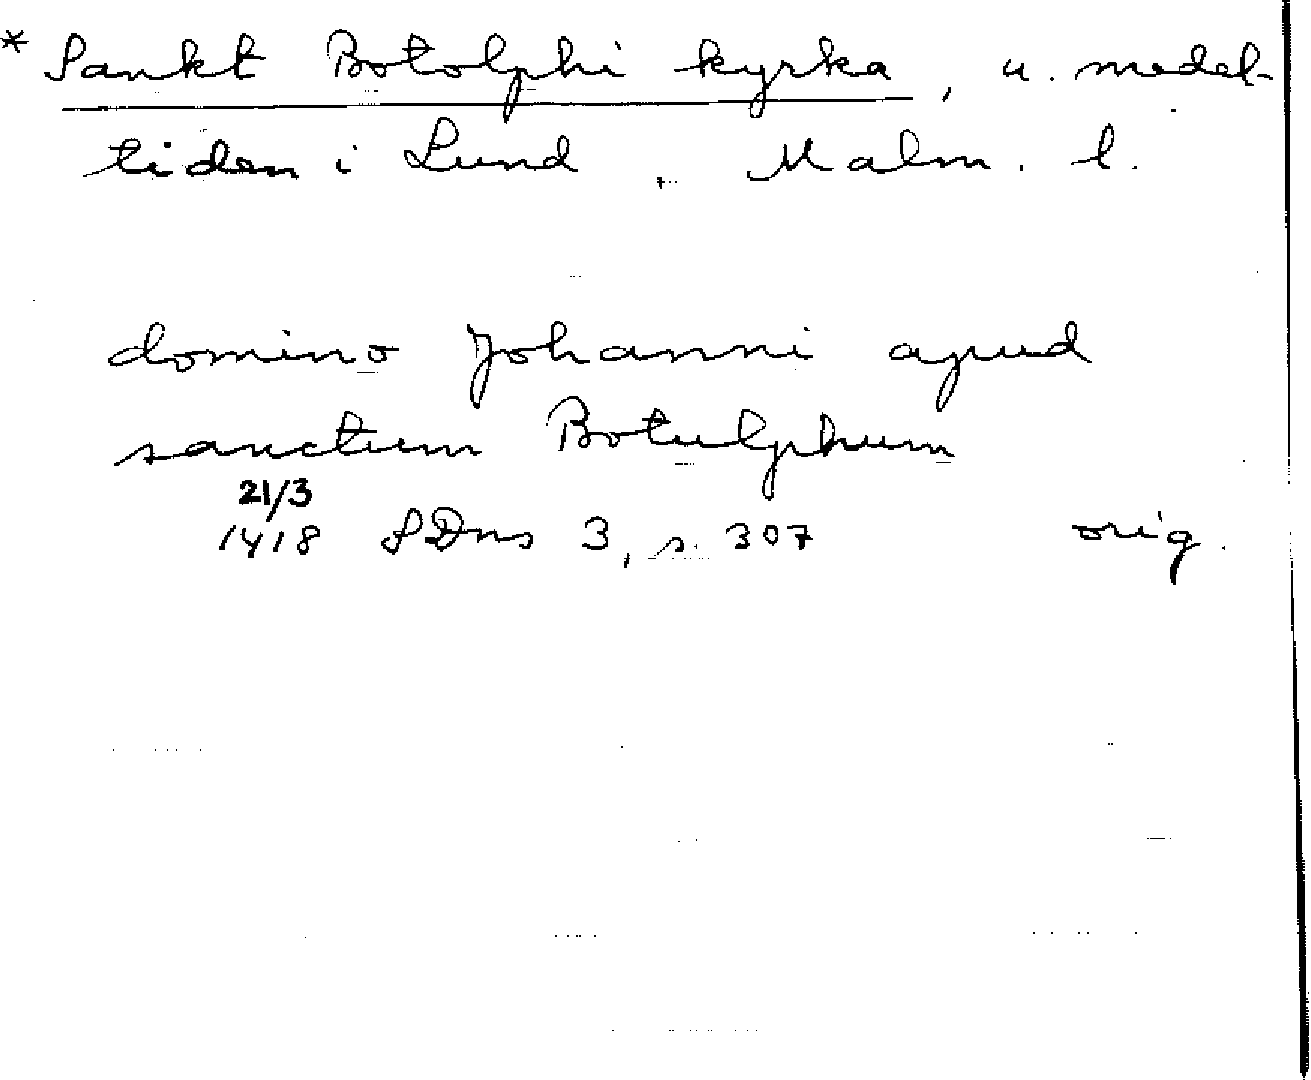 * Sankt Botolphi kyrka, u. medel-
tiden i Lund, Malm. l.
domino Johanni apud
sanctum Botulphum
21/3
1418 SDns 3, s. 307 orig.